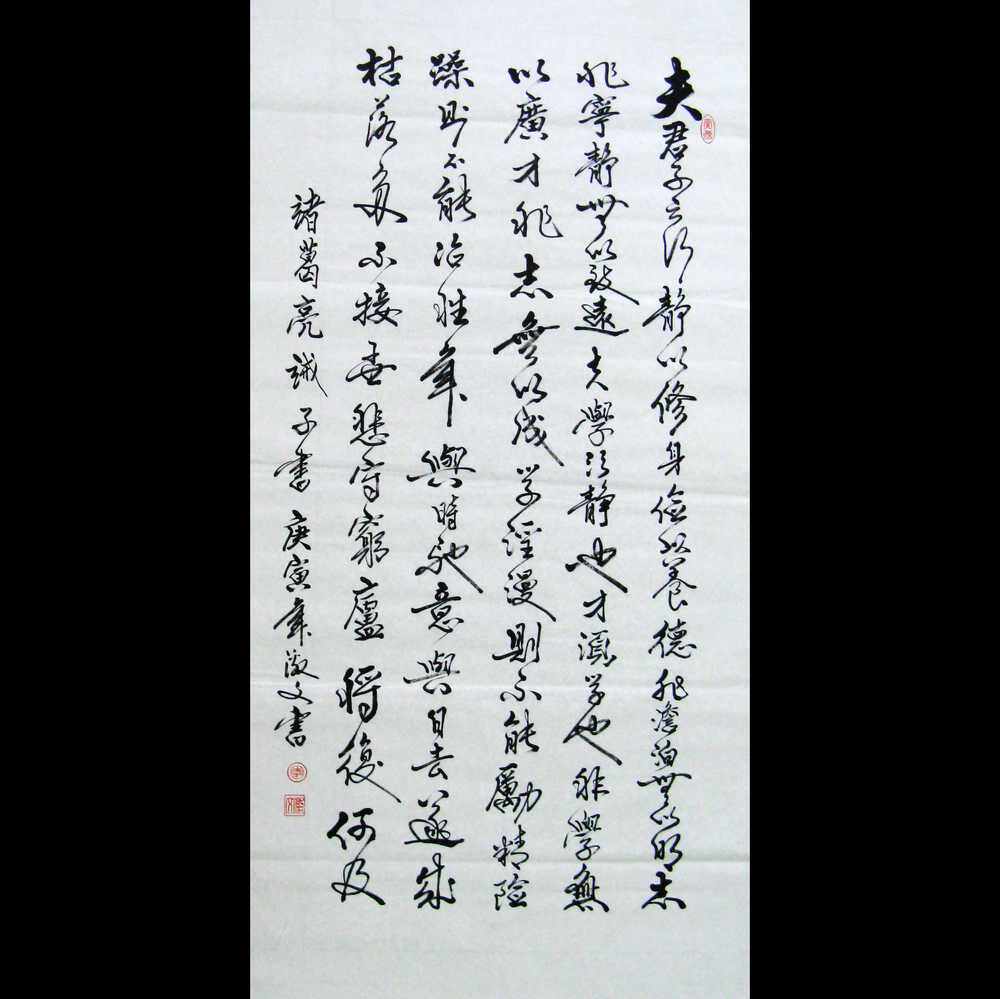 夫君子之行静以修身俭以养德非澹泊無以明志
非寧静無以致遠夫學须静也才須学也非學無
以廣才非志無以成学淫漫則不能勵精險
躁则不能治性年與時馳意與日去遂成
枯落多不接世悲守窮廬將復何及
諸葛亮誡子書庚寅年文書